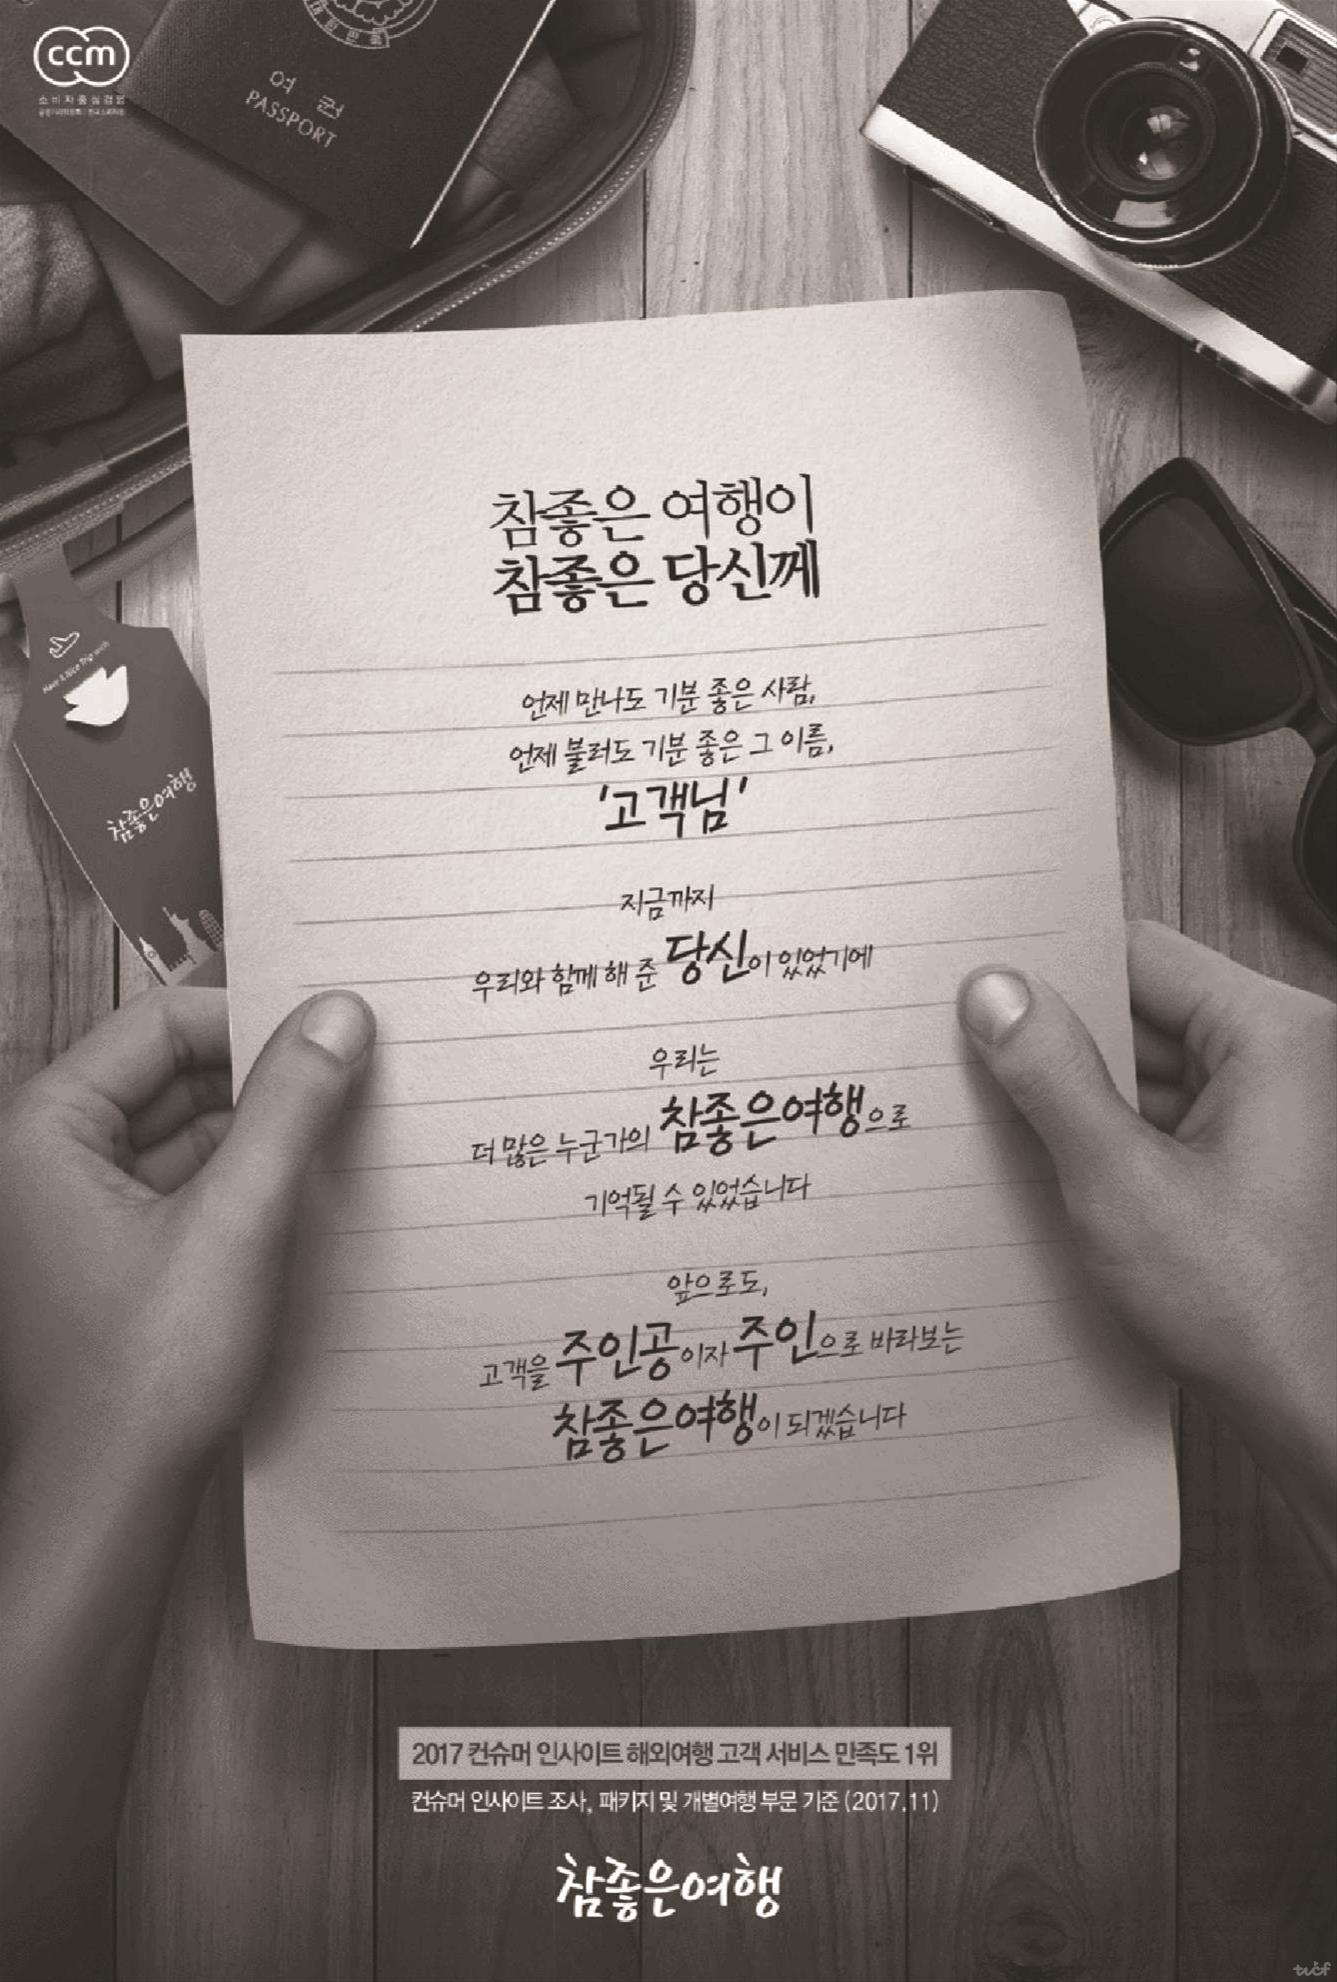 ccm
소비자중심경영
여권
PASSPORT
참좋은 여행이
참좋은 당신께
Have A Nice Trip with
참좋은여행
언제 만나도 기분 좋은 사람,
언제 불러도 기분 좋은 그 이름,
'고객님'
지금까지
우리와 함께 해 준 당신이 있었기에
우리는
더 많은 누군가의 참좋은여행으로
기억될 수 있었습니다
앞으로도,
고객을 주인공이자 주인으로 바라보는
참좋은여행이 되겠습니다
2017 컨슈머 인사이트 해외여행 고객 서비스 만족도 1위
컨슈머 인사이트 조사, 패키지 및 개별여행 부문 기준 (2017.11)
참좋은여행
tvcf